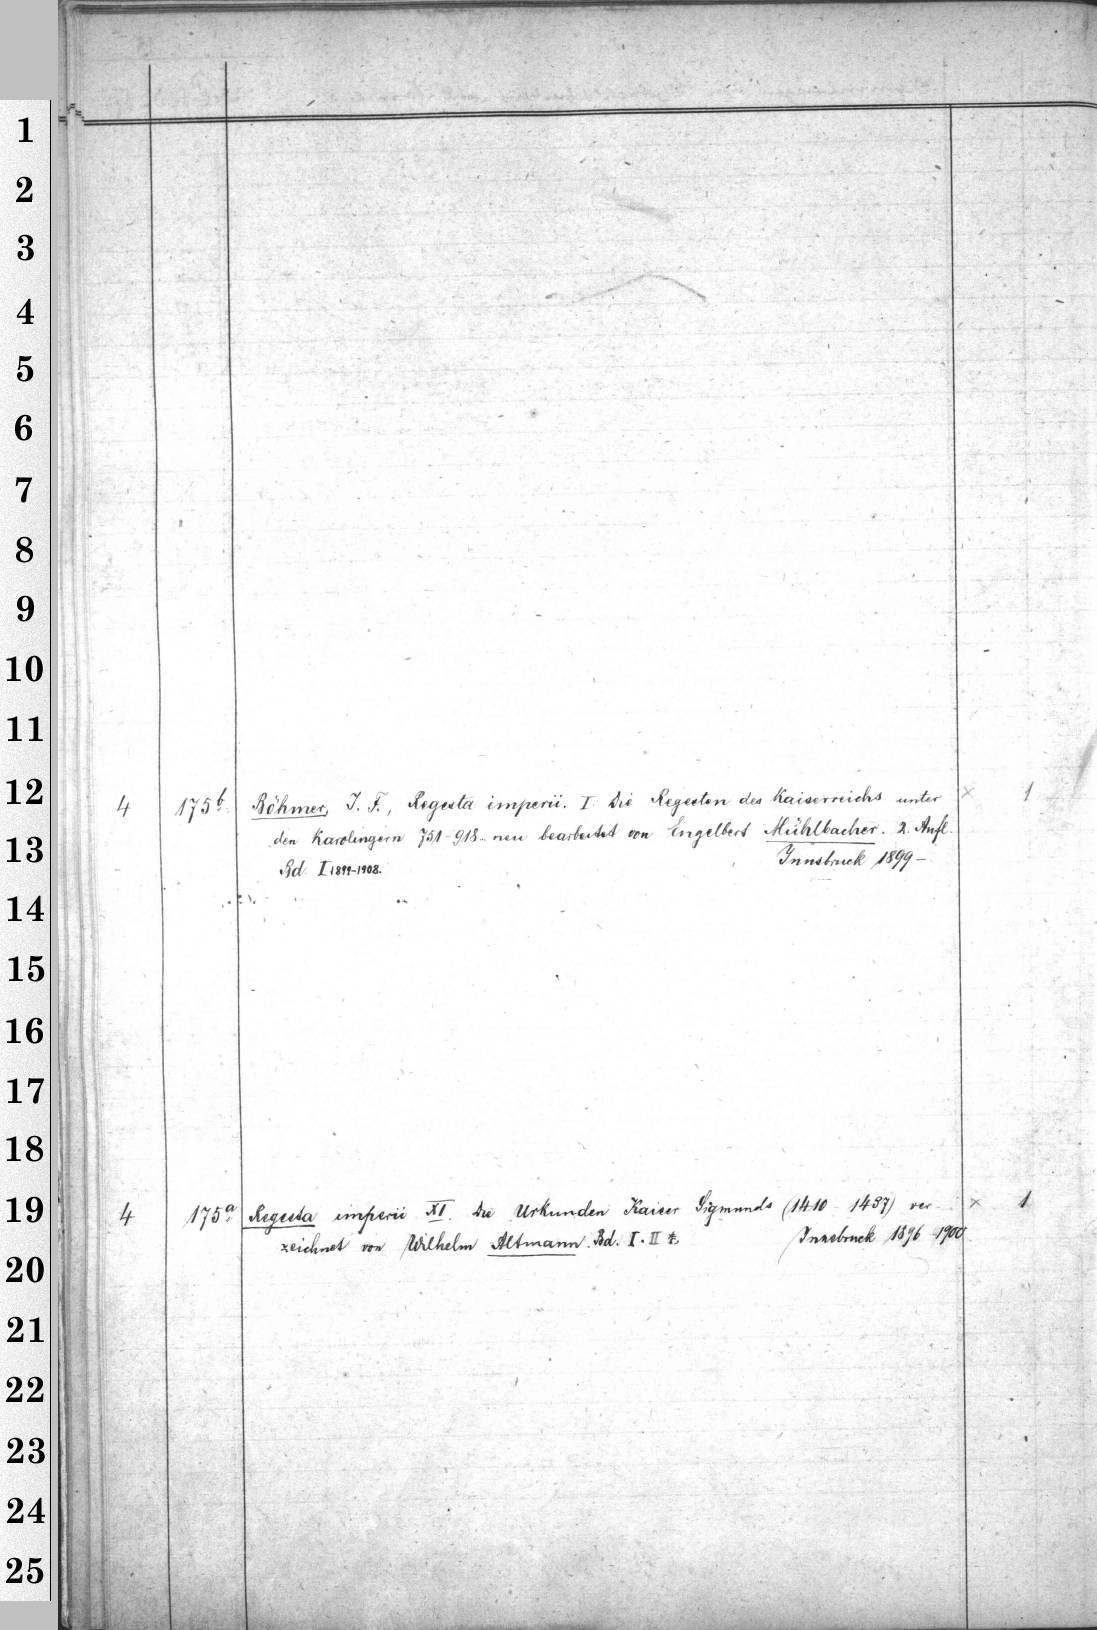 1
2
3
4
5
6
7
8
9
10
11
12
13
14
15
16
17
18
19
20
21
22
23
24
25
4 175b Böhmer, J. F., Regesta imperii. I. Die Regesten des Kaiserreichs unter × 1
den Karolingern 751-918 neu bearbeitet von Engelbert Mühlbacher. 2. Aufl.
Bd I 1899-1908. Innsbruck 1899-
4 175a Regesta imperii XI. Die Urkunden Kaiser Sigmunds (1410-1437) ver- × 1
zeichnet von Wilhelm Altmann. Bd. I. II Innsbruck 1896-1900